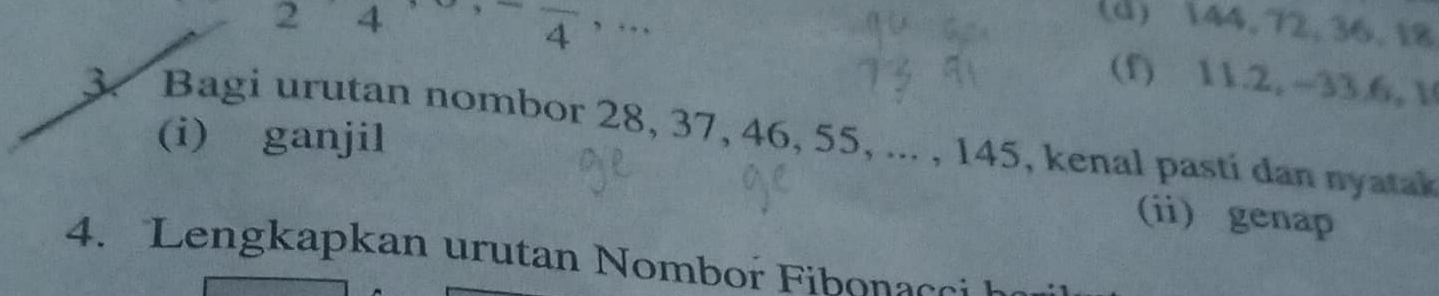 2 4 4 , ...
(d) 144, 72, 36, 18
(f) 11.2, −33.6,
3. Bagi urutan nombor 28, 37, 46, 55, ... , 145, kenal pasti dan nyatak
(i) ganjil
(ii) genap
ge ge
4. Lengkapkan urutan Nombor Fibonacci